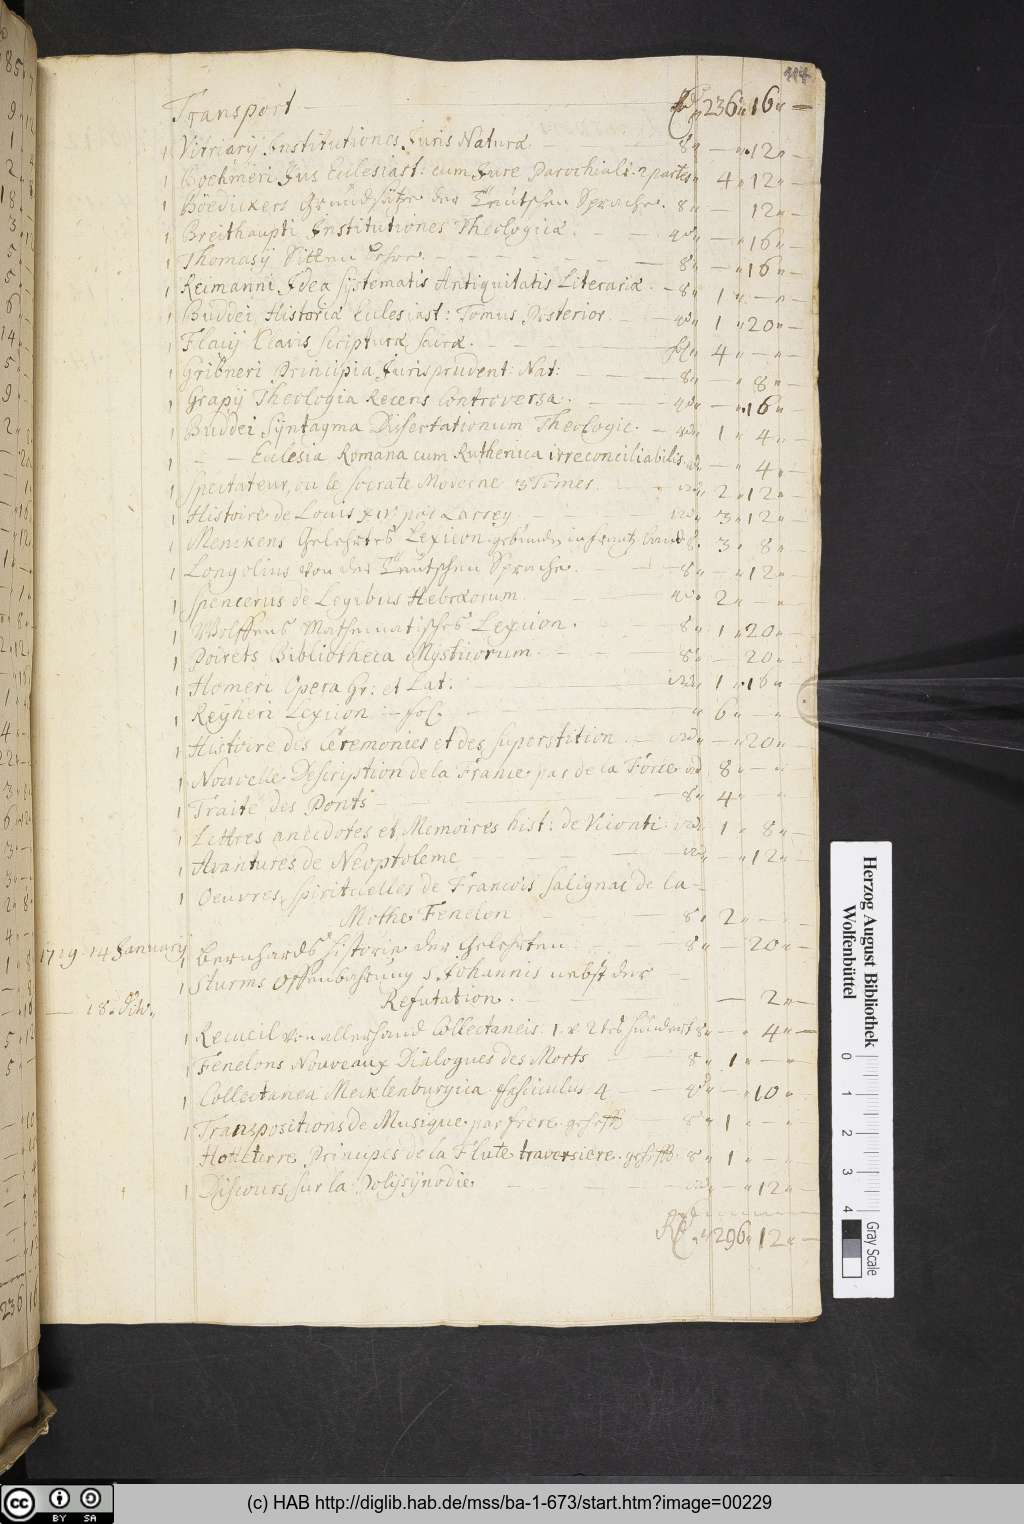 Transport — 236 „ 16 „ —
1 Vitriarij Institutiones Juris Naturæ. — 8° „ — „ 12 „ —
1 Boehmeri Jus Ecclesiast: cum Jure Parochiali. 2 partes „ 4 „ 12 „ —
1 Böedickers Grundsätze der Teutschen Sprache. 8° — 12 „ —
1 Breithaupti Institutiones Theologicæ. — 4to „ — „ 16 „ —
1 Thomasij Sitten Lehre — 8° „ — „ 16 „ —
1 Reimanni Idea Systematis Antiquitatis Literariæ. — 8° „ 1 „ — „ —
1 Buddei Historia Ecclesiast: Tomus Posterior. — 4to „ 1 „ 20 „ —
1 Flacij Clavis Scripturæ Sacræ. — fol. „ 4 „ — „ —
1 Gribneri Principia Jurisprudent: Nat: — 8° „ — „ 8 „ —
1 Grapij Theologia Recens Controversa. — 4to „ — „ 16 „ —
1 Buddei Syntagma Dissertationum Theologic. — 4to „ 1 „ 4 „ —
1 — — Ecclesia Romana cum Ruthenica irreconciliabilis. „ — „ 4 „ —
1 Spectateur, ou le Socrate Moderne 3 Tomes. — 12° „ 2 „ 12 „ —
1 Histoire de Louis XIV. par Larrey. — 12° „ 3 „ 12 „ —
1 Menckens Gelehrtes Lexicon gebunden in frantz band 8° „ 3 „ 8 „ —
1 Longolius von der Teutschen Sprache. — 8° „ — „ 12 „ —
1 Spencerus de Legibus Hebræorum. — 4to „ 2 „ — „ —
1 Wolffens Mathematisches Lexicon. — 8° „ 1 „ 20 „ —
1 Poirets Bibliotheca Mysticorum. — 8° „ — 20 „ —
1 Homeri Opera Gr: et Lat: — 12° „ 1 „ 16 „ —
1 Reyheri Lexicon — fol. — „ 6 „ — „ —
1 Histoire des Ceremonies et des Superstition — 12° „ — „ 20 „ —
1 Nouvelle Description de la France par de la Force 12° „ 8 „ — „ —
1 Traité des Ponts — 8° „ 4 „ — „
1 Lettres anecdotes et Memoires hist: de Viconti. 12° „ 1 „ 8 „ —
1 Avantures de Neoptoleme — 12° „ — „ 12 „ —
1 Oeuvres Spirituelles de Francois Salignac de la —
Mothe Fenelon — 8° „ 2 „ — „ —
1719. 14 January 1 Bernhards Historie der Gelehrten — 8° „ — 20 „ —
1 Sturms Offenbahrung S. Johannis nebst der —
Refutation. — — 2 „ —
— 18. dito. 1 Recueil von allerhand Collectaneis. 1. & 2tes hundert 8° „ — „ 4 „ —
1 Fenelons Nouveaux Dialogues des Morts — 8° „ 1 „ — „
1 Collectanea Mecklenburgica fasciculus 4 — 4to „ — „ 10 „ —
1 Transpositions de Musique par frere. — 8° „ 1 „ — „ —
Hotteterre Principes de la Flute traversiere. 8° „ 1 „ — „ —
1 Discours sur la Polysynodie — 12° „ — „ 12 „ —
296 „ 12 „ —
Herzog August Bibliothek
Wolfenbüttel
0 1 2 3 4
Gray Scale
cc BY SA
(c) HAB http://diglib.hab.de/mss/ba-1-673/start.htm?image=00229